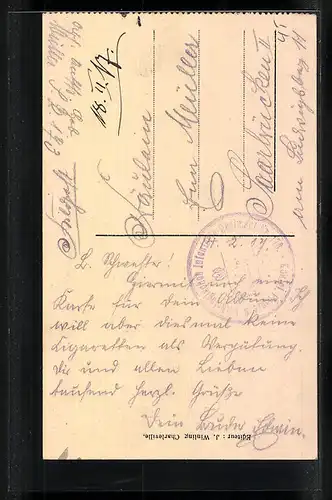 18.II.17.
Fräulein
Änn Müller
Saarbrücken II
am Ludwigsberg 11
14.2.17
L. Schwester!
Hiermit noch eine
Karte für Dein Album. Ich
will aber diesmal keine
Cigaretten als Vergütung.
Dir und allen Lieben
tausend herzl. Grüße
Dein Bruder Erwin.
Editeur : J. Winling Charleville.